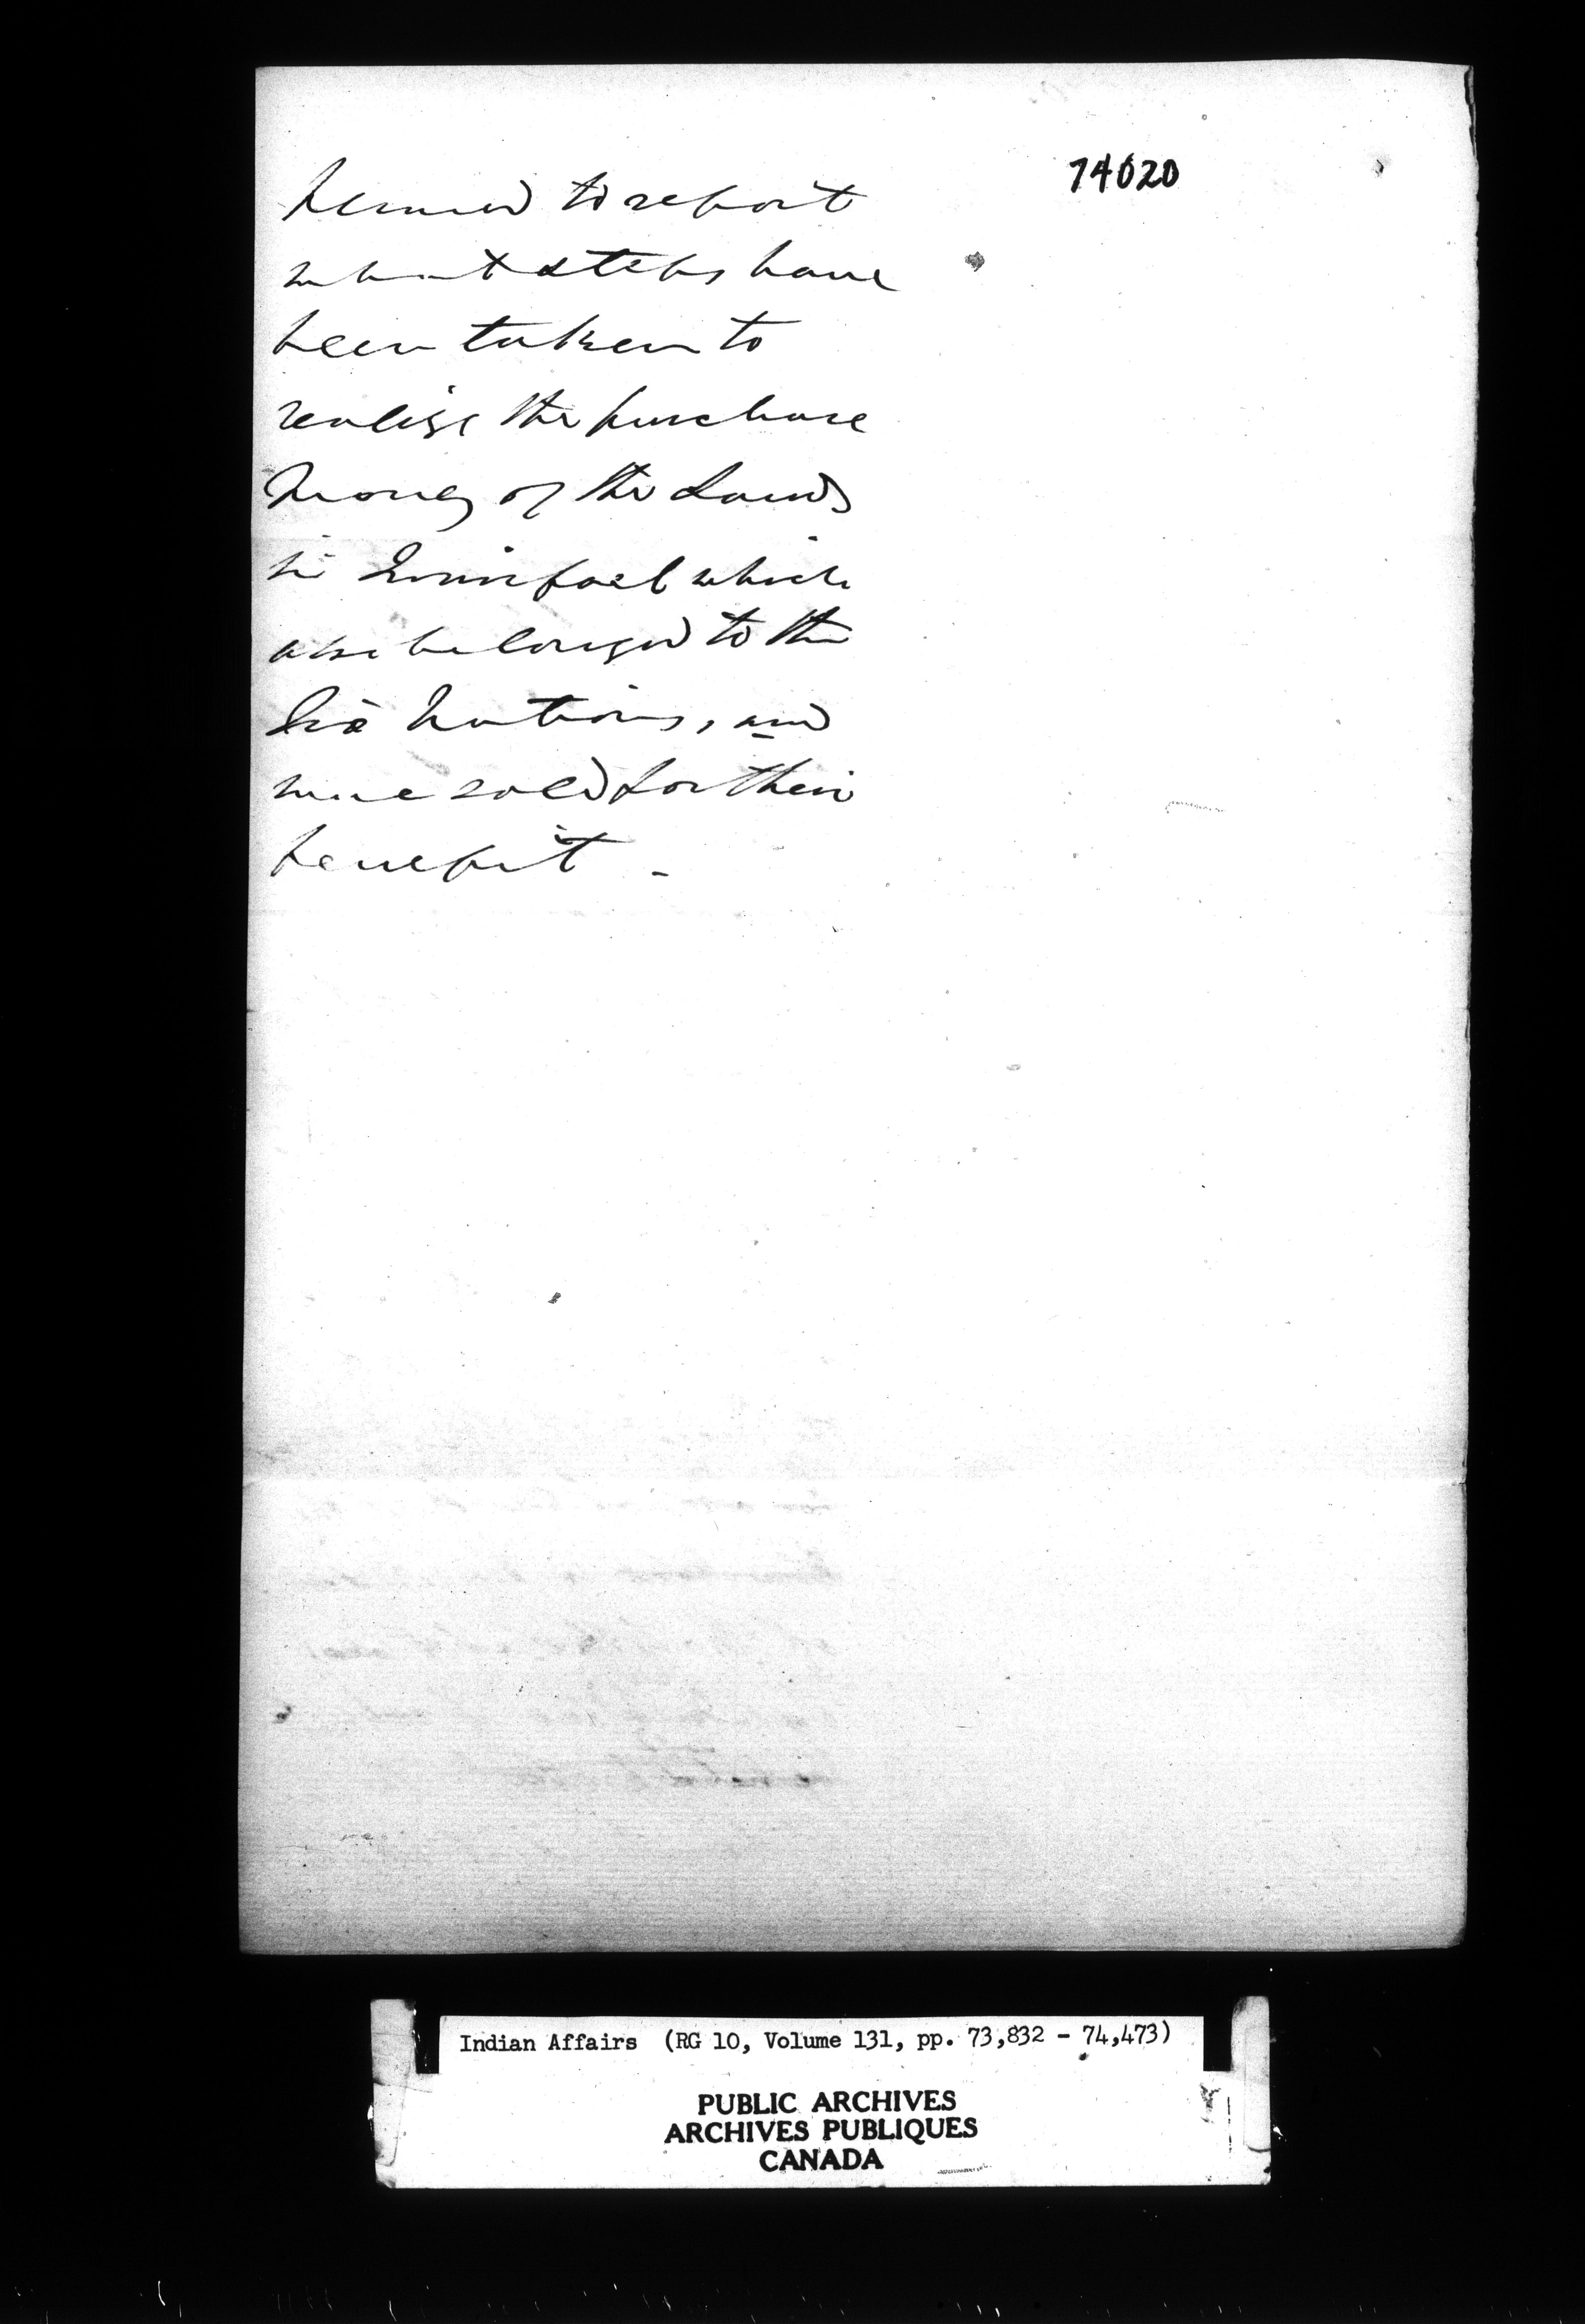 74020
desired to report
what steps have
been taken to
realise the purchase
money of the Lands
in Innisfael which
also belonged to the
Six Nations, and
were sold for their
benefit -
Indian Affairs (RG 10, Volume 131, pp. 73,832 - 74,473)
PUBLIC ARCHIVES
ARCHIVES PUBLIQUES
CANADA